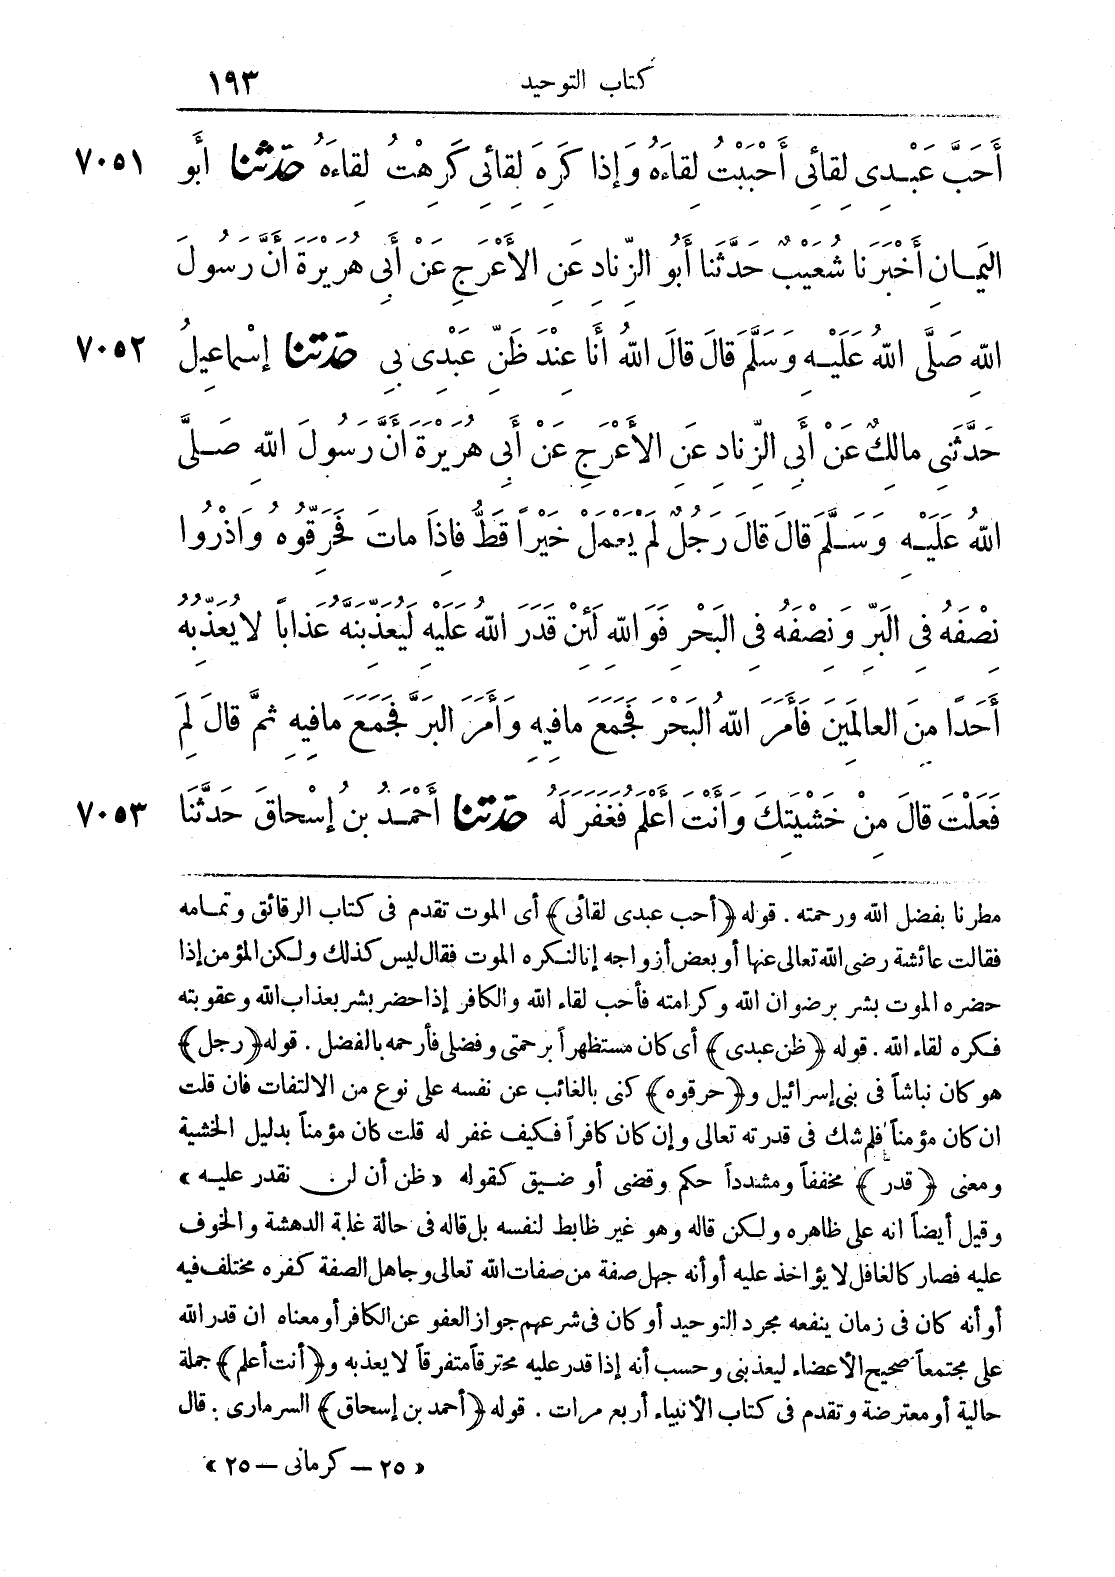 كتاب التوحيد ١٩٣
أَحَبَّ عَبْدِى لِقائِى أَحْبَبْتُ لِقاءَهُ وَإِذا كَرِهَ لِقائِى كَرِهْتُ لِقاءَهُ حَدَّثَنا أَبُو ٧٠٥١
اليَمانِ أَخْبَرَنا شُعَيْبٌ حَدَّثَنا أَبُو الزِّنادِ عَنِ الأَعْرَجِ عَنْ أَبِى هُرَيْرَةَ أَنَّ رَسُولَ
اللهِ صَلَّى اللهُ عَلَيْهِ وَسَلَّمَ قالَ قالَ اللهُ أَنا عِنْدَ ظَنِّ عَبْدِى بِى حَدَّثَنا إِسْماعِيلُ ٧٠٥٢
حَدَّثَنِى مالِكٌ عَنْ أَبِى الزِّنادِ عَنِ الأَعْرَجِ عَنْ أَبِى هُرَيْرَةَ أَنَّ رَسُولَ اللهِ صَلَّى
اللهُ عَلَيْهِ وَسَلَّمَ قالَ قالَ رَجُلٌ لَمْ يَعْمَلْ خَيْراً قَطُّ فاِذَا ماتَ فَحَرِّقُوهُ وَاذْرُوا
نِصْفَهُ فِى البَرِّ وَنِصْفَهُ فِى البَحْرِ فَوَاللهِ لَئِنْ قَدَرَ اللهُ عَلَيْهِ لَيُعَذِّبَنَّهُ عَذاباً لا يُعَذِّبُهُ
أَحَدًا مِنَ العالَمِينَ فَأَمَرَ اللهُ البَحْرَ فَجَمَعَ ما فِيهِ وَأَمَرَ البَرَّ فَجَمَعَ ما فِيهِ ثُمَّ قالَ لِمَ
فَعَلْتَ قالَ مِنْ خَشْيَتِكَ وَأَنْتَ أَعْلَمُ فَغَفَرَ لَهُ حَدَّثَنا أَحْمَدُ بنُ إِسْحاقَ حَدَّثَنَا ٧٠٥٣
مطرنا بفضل الله ورحمته . قوله ﴿أحب عبدى لقائى﴾ أى الموت تقدم فى كتاب الرقائق وتمامه
فقالت عائشة رضى الله تعالى عنها أو بعض أزواجه إنا لنكره الموت فقال ليس كذلك ولكن المؤمن إذا
حضره الموت بشر برضوان الله وكرامته فأحب لقاء الله والكافر إذا حضر بشر بعذاب الله وعقوبته
فكره لقاء الله . قوله ﴿ظن عبدى﴾ أى كان مستظهراً برحمتى وفضلى فأرحمه بالفضل . قوله ﴿رجل﴾
هو كان نباشاً فى بنى إسرائيل و﴿حرقوه﴾ كنى بالغائب عن نفسه على نوع من الالتفات فان قلت
ان كان مؤمناً فلم شك فى قدرته تعالى وإن كان كافراً فكيف غفر له قلت كان مؤمناً بدليل الخشية
ومعنى ﴿قدر﴾ مخففاً ومشدداً حكم وقضى أو ضيق كقوله « ظن أن لن نقدر عليه »
وقيل أيضاً انه على ظاهره ولكن قاله وهو غير ظابط لنفسه بل قاله فى حالة غلبة الدهشة والخوف
عليه فصار كالغافل لا يؤاخذ عليه أو أنه جهل صفة من صفات الله تعالى وجاهل الصفة كفره مختلف فيه
أو أنه كان فى زمان ينفعه مجرد التوحيد أو كان فى شرعهم جواز العفو عن الكافر أو معناه ان قدر الله
على مجتمعاً صحيح الأعضاء ليعذبنى وحسب أنه إذا قدر عليه محترقاً متفرقاً لا يعذبه و﴿أنت أعلم﴾ جملة
حالية أو معترضة وتقدم فى كتاب الأنبياء أربع مرات . قوله ﴿أحمد بن إسحاق﴾ السرمارى . قال
« ٢٥ – كرمانى – ٢٥ »